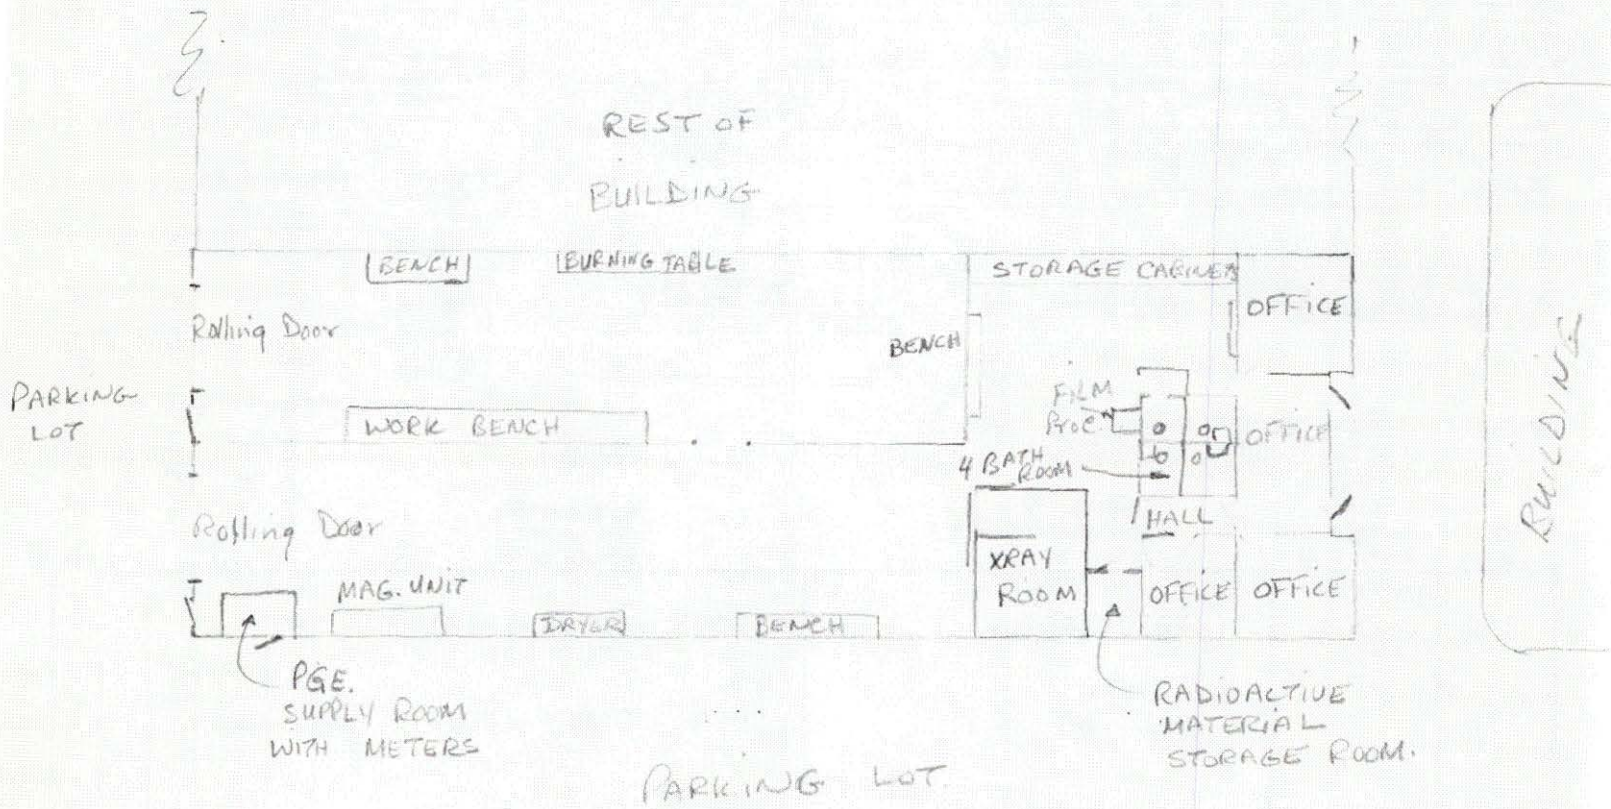 REST OF
BUILDING
BENCH
BURNING TABLE
STORAGE CABINET
OFFICE
Rolling Door
BENCH
PARKING
LOT
WORK BENCH
FILM
PROC.
OFFICE
4 BATH
ROOM
HALL
Rolling Door
XRAY
ROOM
OFFICE
OFFICE
MAG. UNIT
DRYER
BENCH
PGE.
SUPPLY ROOM
WITH METERS
RADIOACTIVE
MATERIAL
STORAGE ROOM.
PARKING LOT.
BUILDING